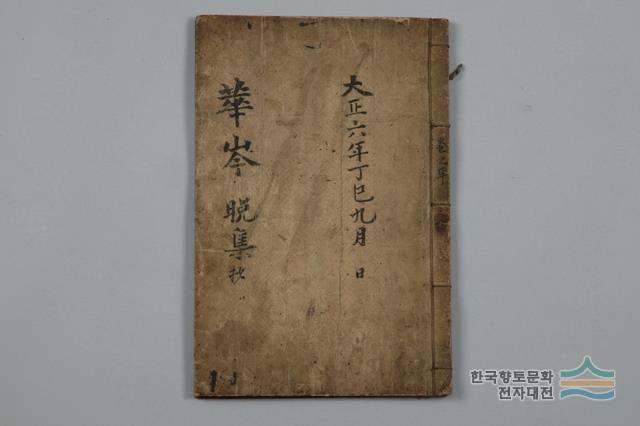 大正六年丁巳九月 日
華岑晩集抄
卷之單
한국향토문화
전자대전